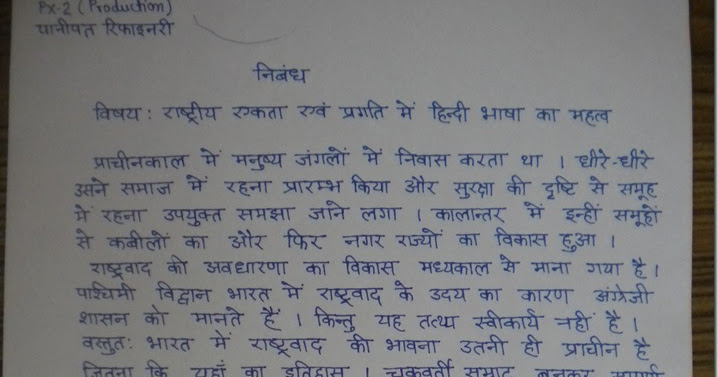 Px-2 (Production)
पानीपत रिफाइनरी
निबंध
विषय : राष्ट्रीय एकता एवं प्रगति में हिन्दी भाषा का महत्व
प्राचीनकाल में मनुष्य जंगलों में निवास करता था । धीरे-धीरे
उसने समाज में रहना प्रारम्भ किया और सुरक्षा की दृष्टि से समूह
में रहना उपयुक्त समझा जाने लगा । कालान्तर में इन्हीं समूहों
से कबीलों का और फिर नगर राज्यों का विकास हुआ ।
राष्ट्रवाद की अवधारणा का विकास मध्यकाल से माना गया है ।
पाश्चिमी विद्वान भारत में राष्ट्रवाद के उदय का कारण अंग्रेजी
शासन को मानते हैं । किन्तु यह तत्थ्य स्वीकार्य नहीं है ।
वस्तुतः भारत में राष्ट्रवाद की भावना उतनी ही प्राचीन है
जितना कि यहाँ का इतिहास । चक्रवर्ती सम्राट बनकर सम्पूर्ण